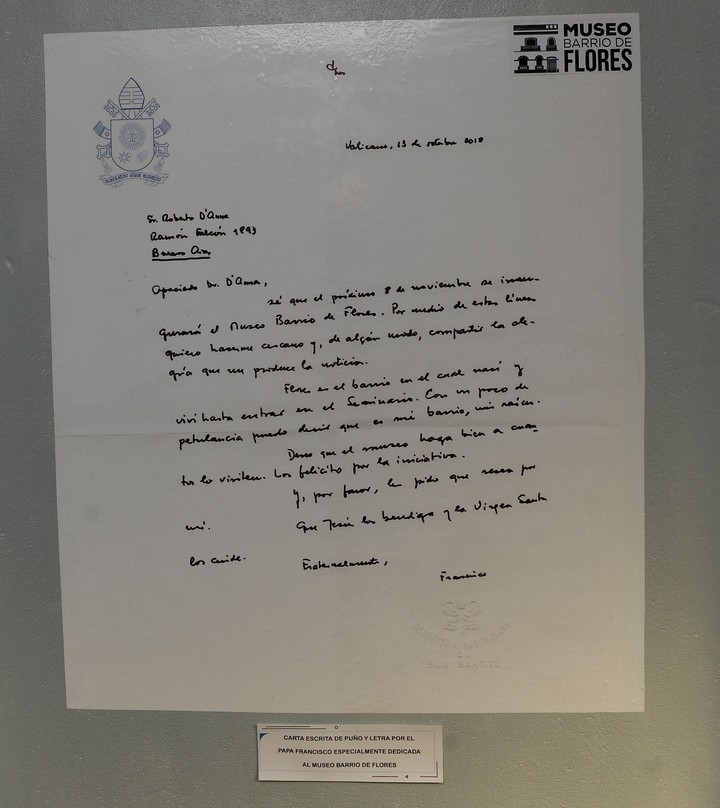 MUSEO
BARRIO DE
FLORES
MISERANDO ATQUE ELIGENDO
Vaticano, 13 de octubre 2018
Sr. Roberto D'Anna
Ramón Falcón
Buenos Aires
Apreciado Sr. D'Anna,
sé que el próximo 8 de noviembre se inau-
gurará el Museo Barrio de Flores. Por medio de estas líneas
quiero hacerme cercano y, de algún modo, compartir la ale-
gría que me produce la noticia.
Flores es el barrio en el cual nací y
viví hasta entrar en el Seminario. Con un poco de
petulancia puedo decir que es mi barrio, mis raíces.
Deseo que el museo haga bien a cuan-
tos lo visiten. Los felicito por la iniciativa.
Y, por favor, les pido que recen por
mí. Que Jesús los bendiga y la Virgen Santa
los cuide. Fraternalmente,
Francisco
SUA SANTITÀ
CARTA ESCRITA DE PUÑO Y LETRA POR EL
PAPA FRANCISCO ESPECIALMENTE DEDICADA
AL MUSEO BARRIO DE FLORES